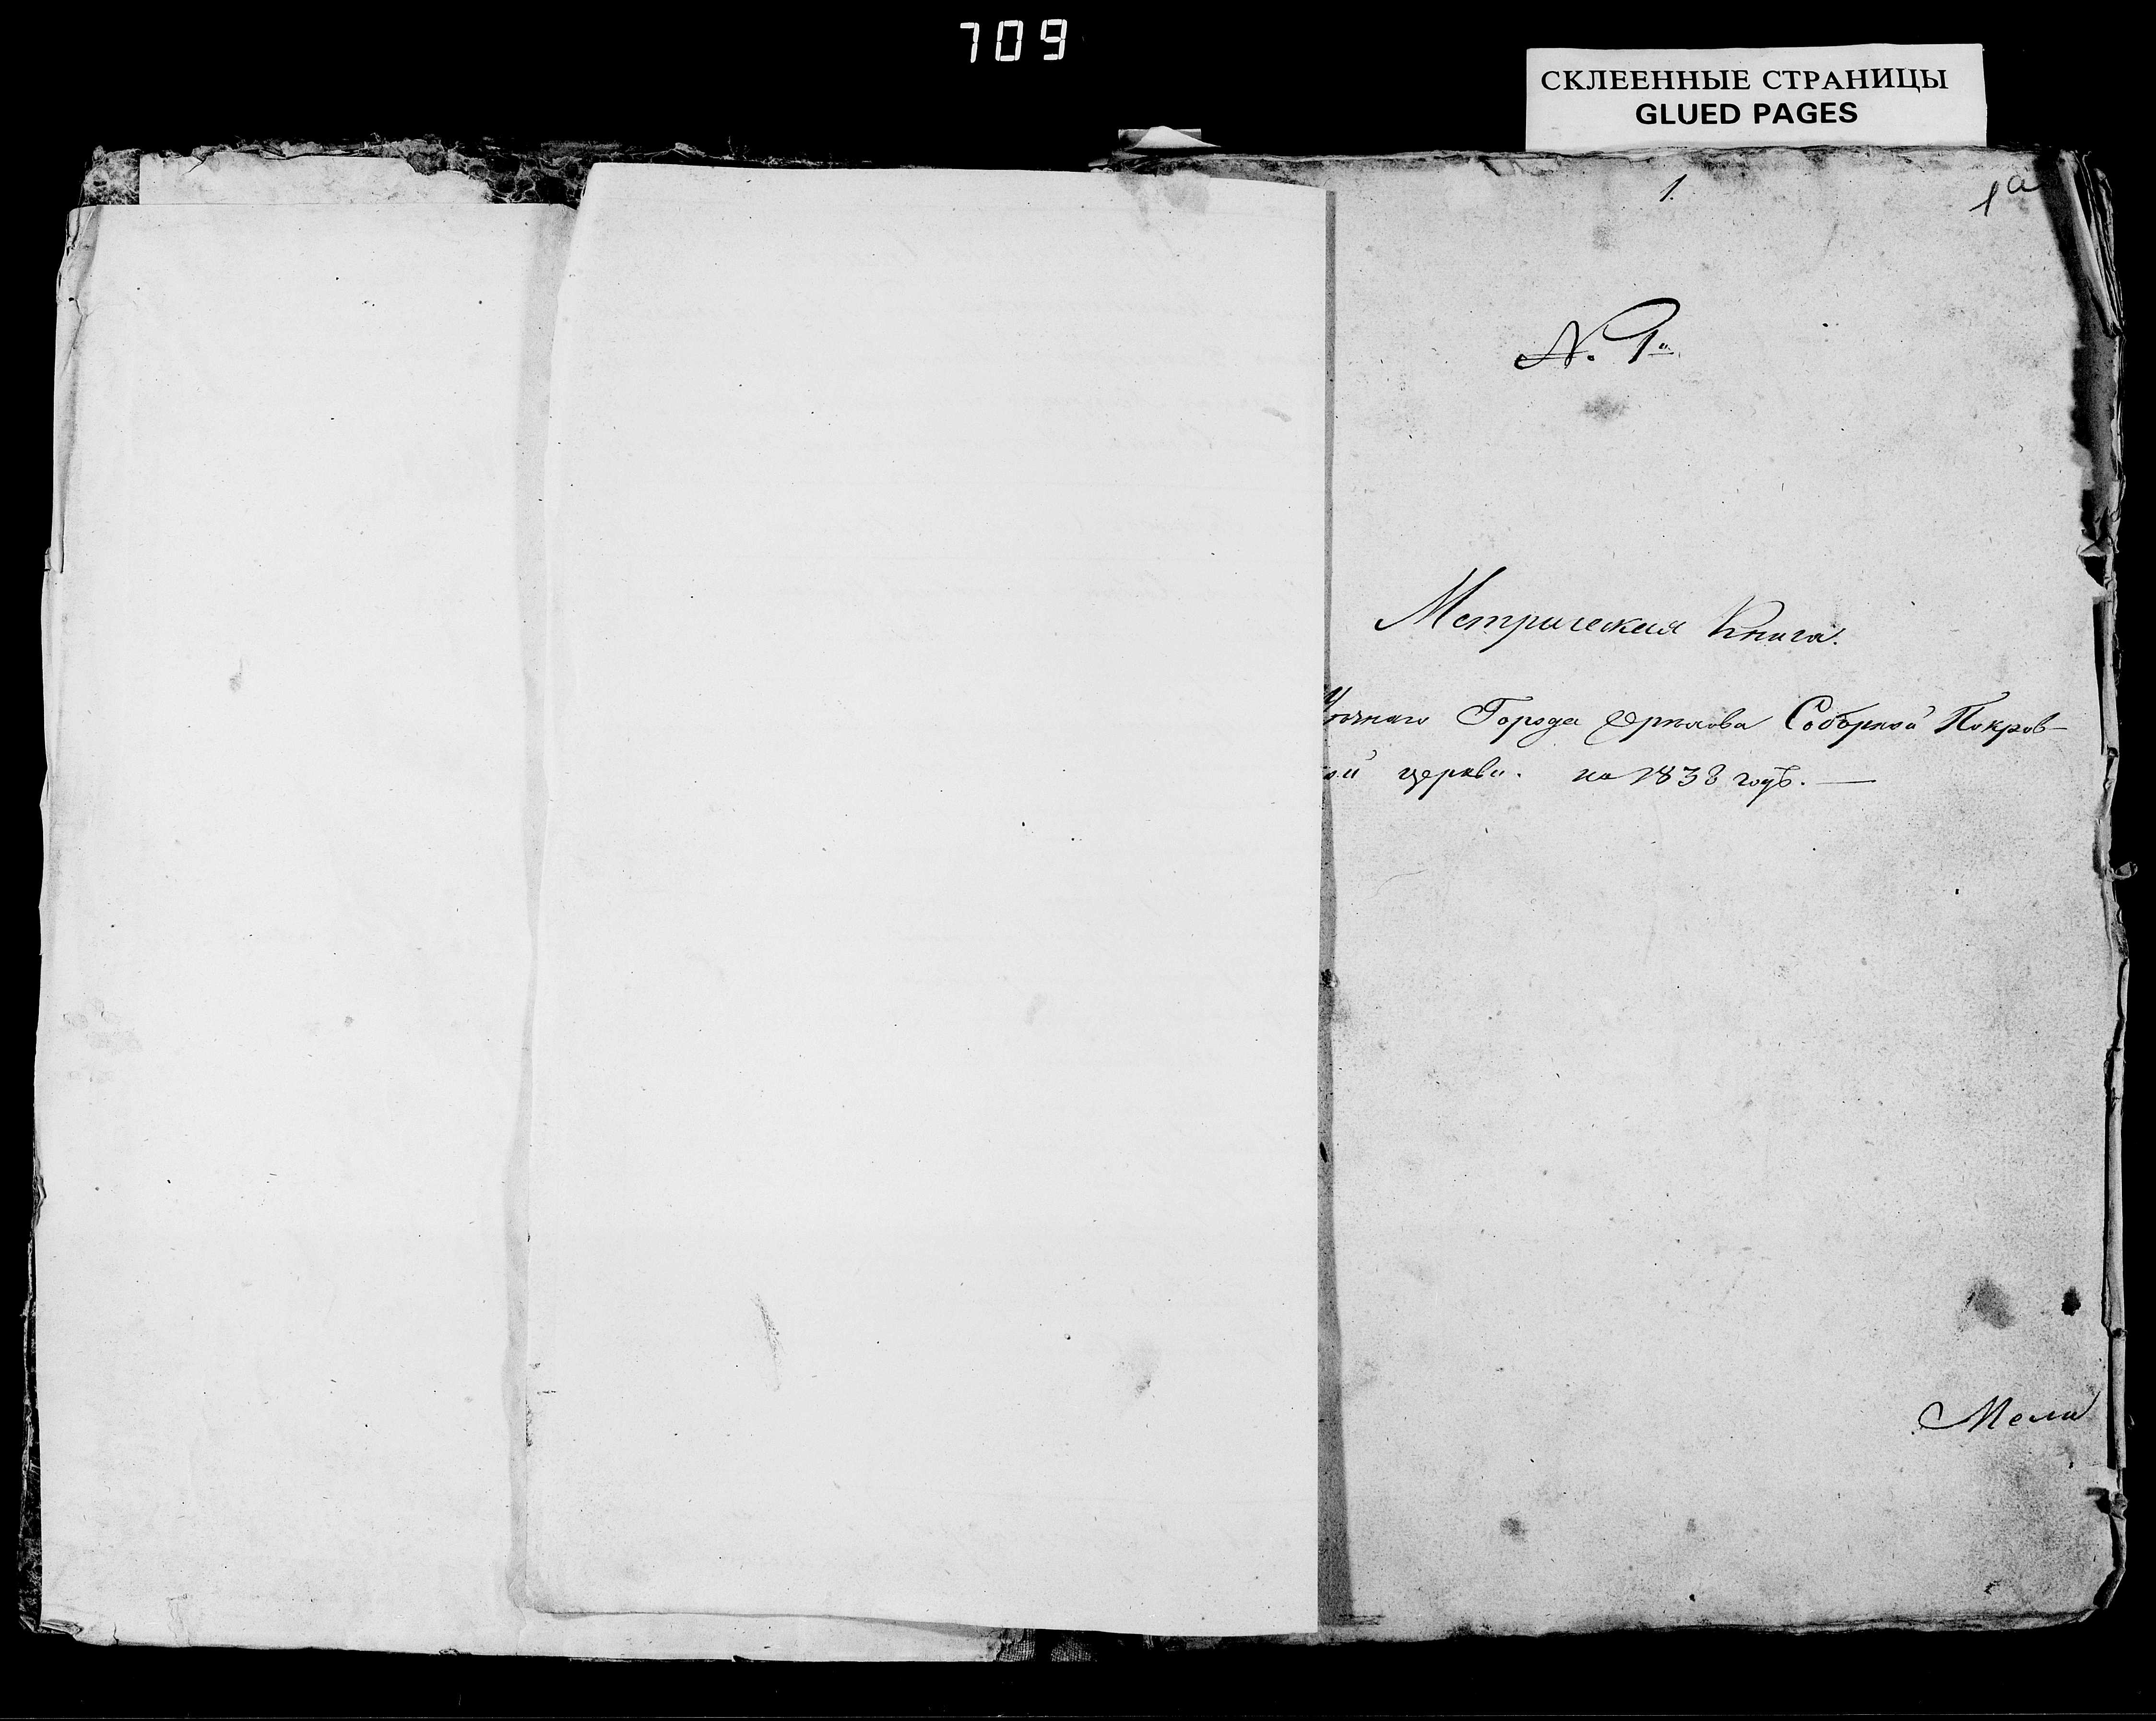 709
СКЛЕЕННЫЕ СТРАНИЦЫ
GLUED PAGES
1.
1а
N. 1й
Метрическая Книга.
Города Орлова Соборной Покров-
ой церкви. на 1838 годъ. —